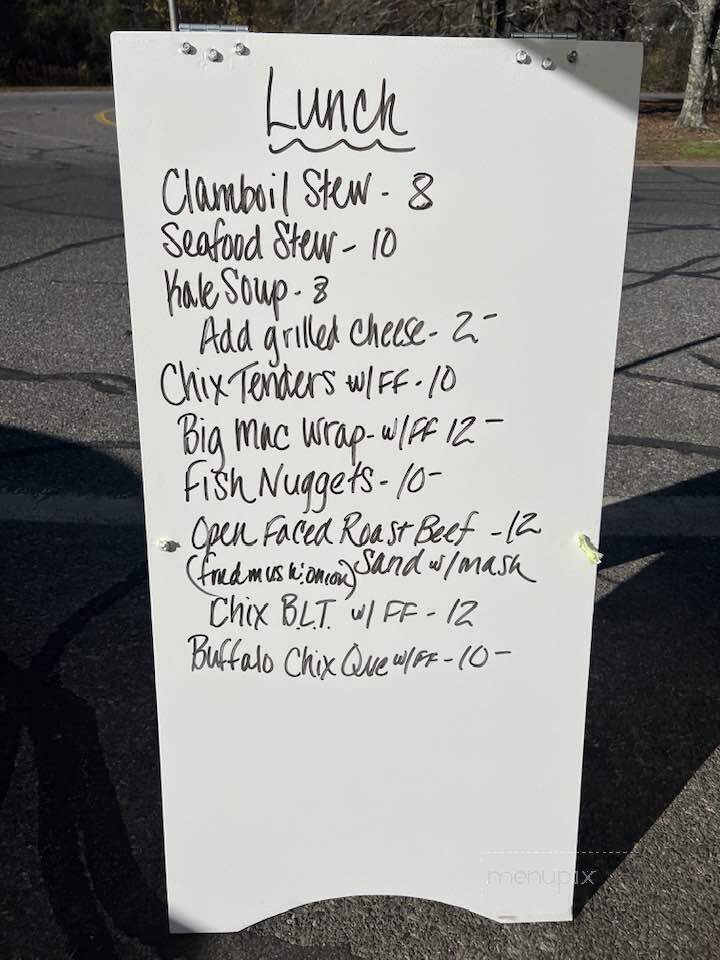 Lunch
Clamboil Stew - 8
Seafood Stew - 10
Kale Soup - 8
Add grilled cheese - 2-
Chix Tenders w/ FF - 10
Big Mac Wrap - w/FF 12-
Fish Nuggets - 10-
Open Faced Roast Beef - 12
(fried mush + onion) Sand w/ mash
Chix B.L.T. w/ FF - 12
Buffalo Chix Que w/FF - 10-
menupix